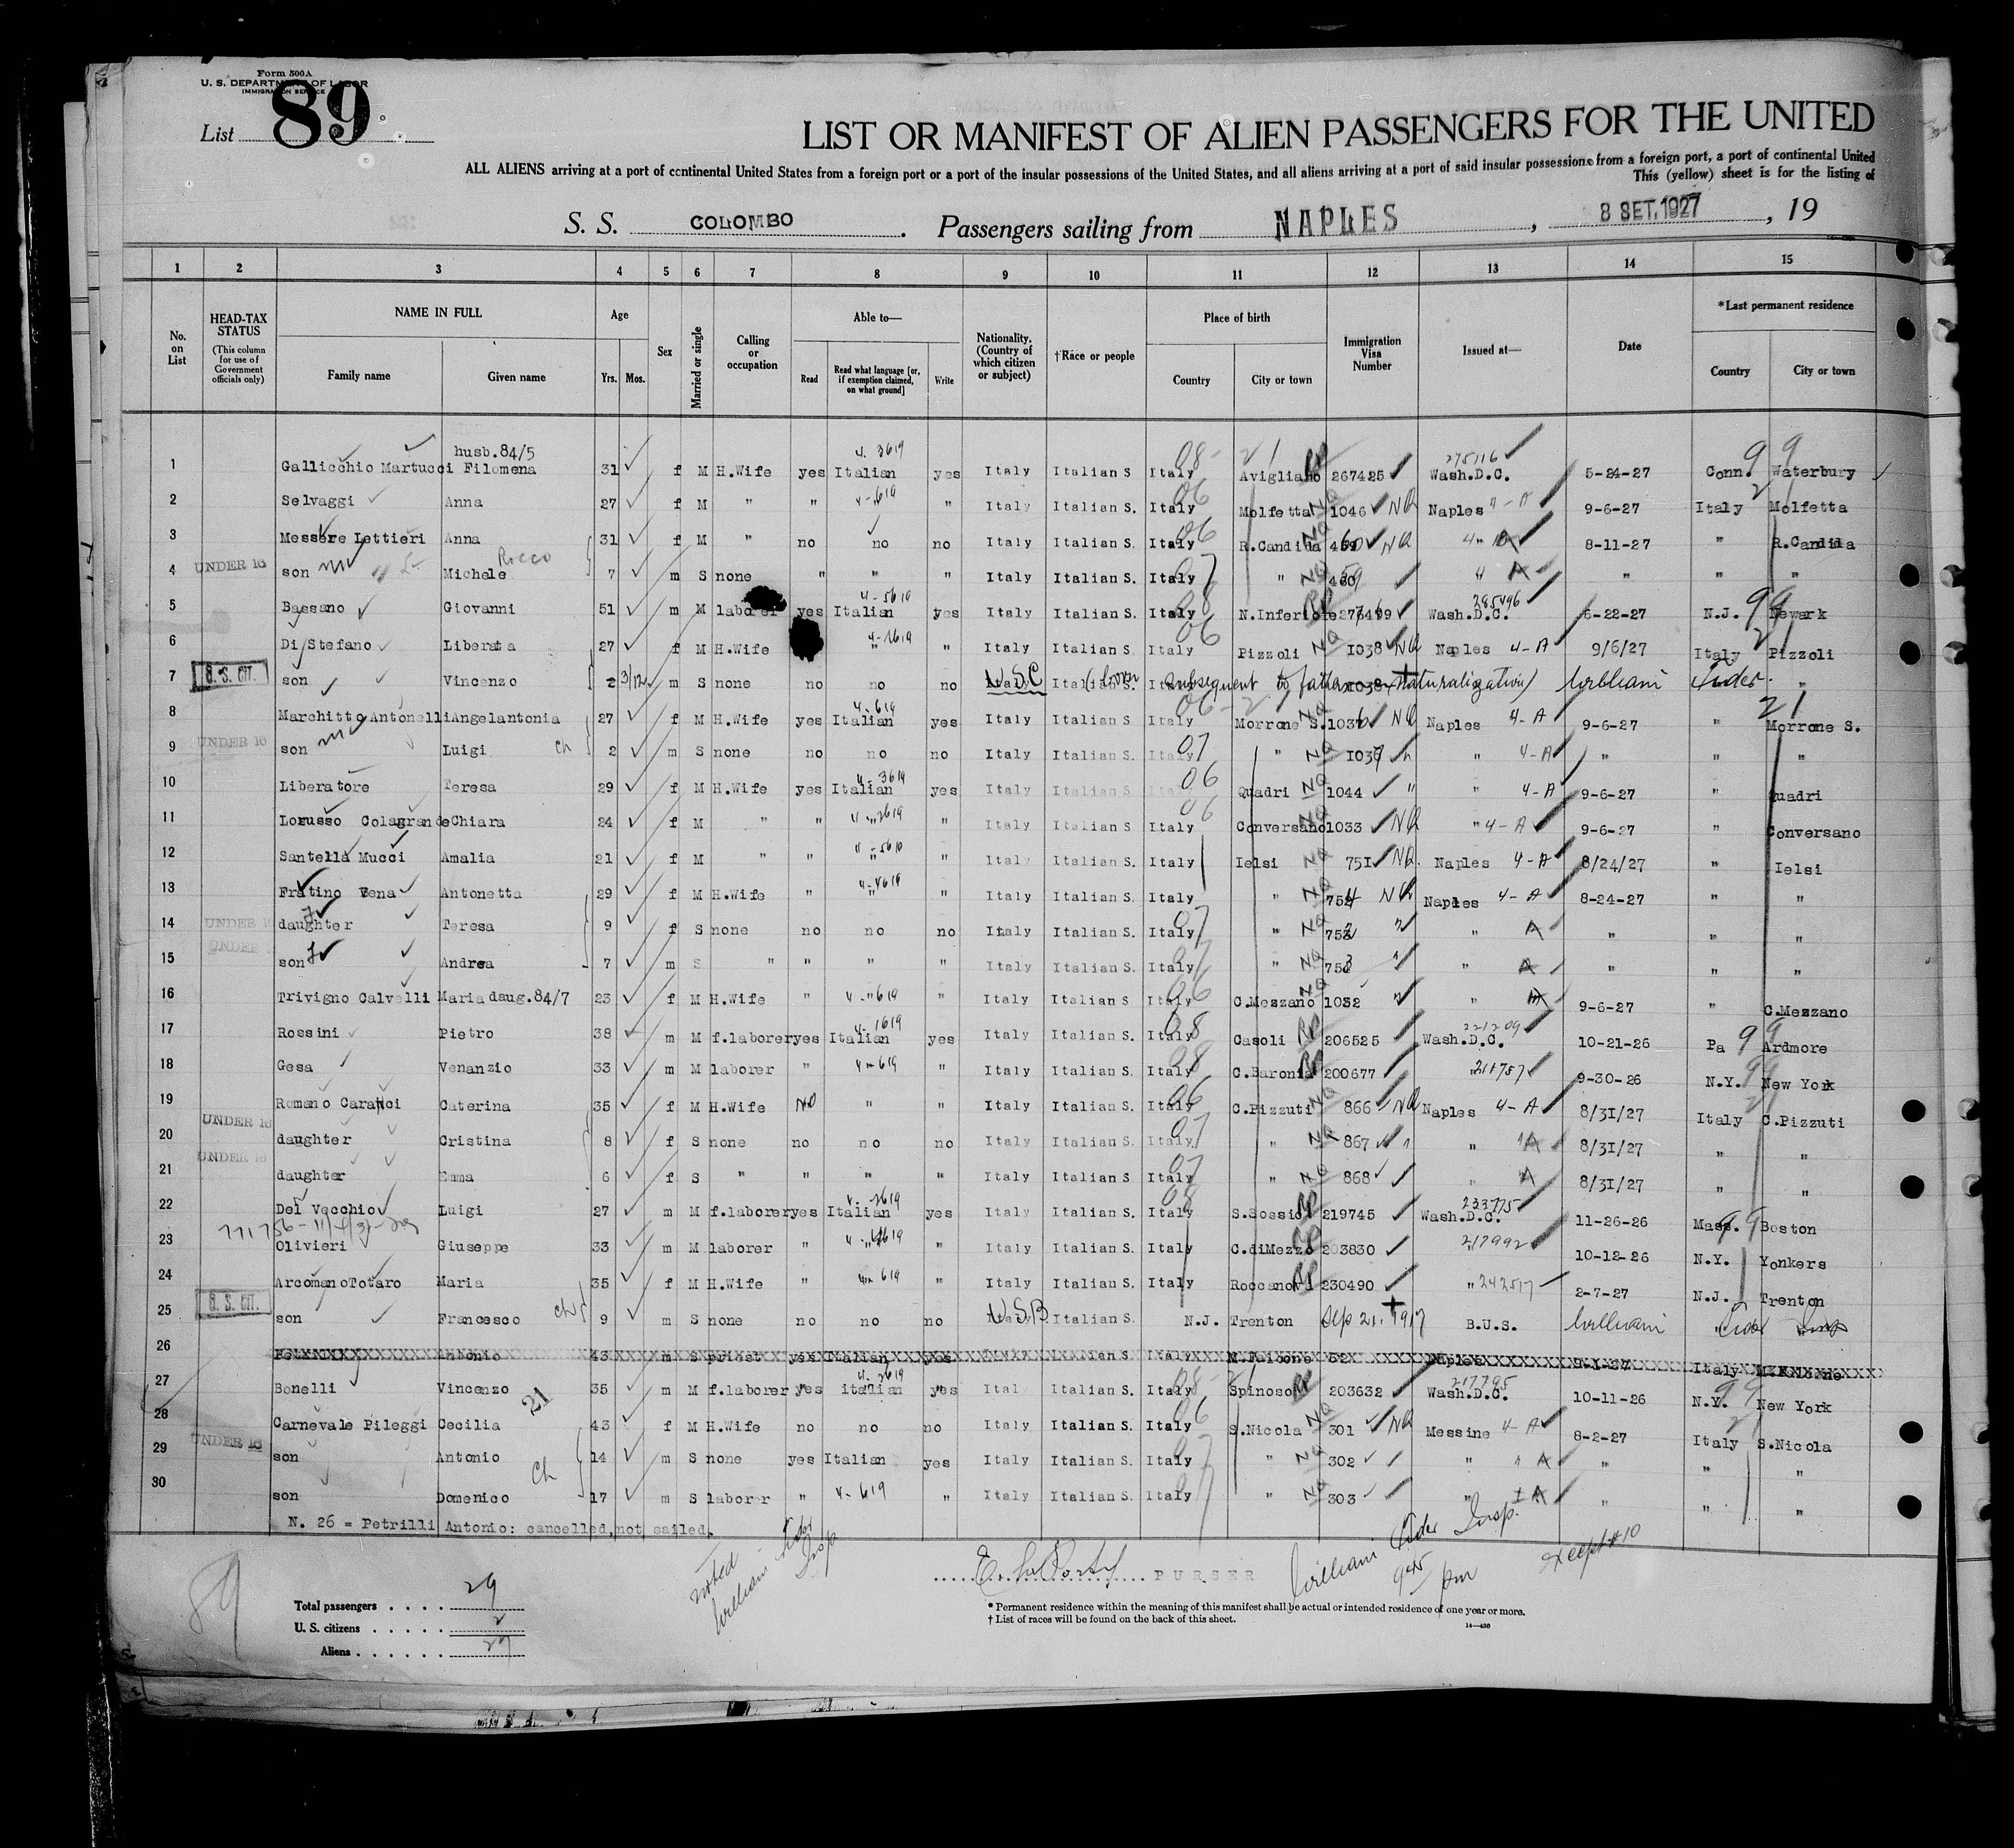 Form 500A
U. S. DEPARTMENT OF LABOR
IMMIGRATION SERVICE
List 89
LIST OR MANIFEST OF ALIEN PASSENGERS FOR THE UNITED
ALL ALIENS arriving at a port of continental United States from a foreign port or a port of the insular possessions of the United States, and all aliens arriving at a port of said insular possessions from a foreign port, a port of continental United
This (yellow) sheet is for the listing of
S. S. COLOMBO . Passengers sailing from NAPLES , 8 SET.1927 , 19
1 2 3 4 5 6 7 8 9 10 11 12 13 14 15
No. on List
HEAD-TAX STATUS (This column for use of Government officials only)
NAME IN FULL Family name Given name
Age Yrs. Mos.
Sex
Married or single
Calling or occupation
Able to— Read Read what language [or, if exemption claimed, on what ground] Write
Nationality. (Country of which citizen or subject)
†Race or people
Place of birth Country City or town
Immigration Visa Number
Issued at—
Date
*Last permanent residence Country City or town
husb.84/5 275116
1 Gallicchio Martucci Filomena 31 f M H.Wife yes Italian yes Italy Italian S Italy Avigliano 267425 Wash.D.C. 5-24-27 Conn. Waterbury
2 Selvaggi Anna 27 f M " " " Italy Italian S. Italy Molfetta 1046 NQ Naples 4-A 9-6-27 Italy Molfetta
3 Messere Lettieri Anna 31 f M " no no no Italy Italian S. Italy R.Candida NQ 8-11-27 " R.Candida
Rocco
4 UNDER 16 son Michele 7 m S none " " " Italy Italian S. Italy " " " "
285496
5 Bassano Giovanni 51 m M laborer yes Italian yes Italy Italian S. Italy N.Inferiore Wash.D.C. 6-22-27 N.J. Newark
6 Di Stefano Liberata 27 f M H.Wife " " Italy Italian S. Italy Pizzoli 1038 NQ Naples 4-A 9/6/27 Italy Pizzoli
7 U. S. CIT. son Vincenzo 2 3/12 m S none no no no U.S.C Italian S. (born subsequent to father naturalization) 1038 William "
8 Marchitto Antonelli Angelantonia 27 f M H.Wife yes Italian yes Italy Italian S. Italy Morrone S. 1036 NQ Naples 4-A 9-6-27 " Morrone S.
9 UNDER 16 son Luigi ch 2 m S none no no no Italy Italian S. Italy " 1037 " 4-A " " "
10 Liberatore Teresa 29 f M H.Wife yes Italian yes Italy Italian S Quadri 1044 " " 4-A 9-6-27 " Quadri
11 Lorusso Colagrande Chiara 24 f M " " " Italy Italian S Italy Conversano 1033 NQ " 4-A 9-6-27 " Conversano
12 Santella Mucci Amalia 21 f M " " " " Italy Italian S. Italy Ielsi 751 NQ. Naples 4-A 8/24/27 " Ielsi
13 Fratino Vena Antonetta 29 f M H.Wife " " " Italy Italian S. Italy " 754 NQ Naples 4-A 8-24-27 " "
14 UNDER 16 daughter Teresa 9 f S none no no no Italy Italian S. Italy " " A " " "
15 UNDER son Andrea 7 m S " " " " Italy Italian S. Italy " " A " " "
16 Trivigno Calvelli Maria daug.84/7 23 f M H.Wife " " " Italy Italian S Italy C.Mezzano 1032 " " 9-6-27 " C.Mezzano
221209
17 Rossini Pietro 38 m M f.laborer yes Italian yes Italy Italian S. Italy Casoli 206525 Wash.D.C. 10-21-26 Pa Ardmore
18 Gesa Venanzio 33 m M laborer " " Italy Italian S. Italy C.Baronia 200677 9-30-26 N.Y. New York
19 Romano Caranci Caterina 35 f M H.Wife NO " " Italy Italian S. Italy C.Pizzuti 866 NQ Naples 4-A 8/31/27 Italy C.Pizzuti
20 UNDER 16 daughter Cristina 8 f S none no no no Italy Italian S. Italy " 867 " " A 8/31/27 " "
21 UNDER 16 daughter Emma 6 f S " " " " Italy Italian S. Italy " 868 " A 8/31/27 " "
233775
22 Del Vecchio Luigi 27 m M f.laborer yes Italian yes Italy Italian S. Italy S.Sossio 219745 Wash.D.C. 11-26-26 Mass. Boston
217992
23 Olivieri Giuseppe 33 m M laborer " " " Italy Italian S. Italy C.diMezzo 203830 " 10-12-26 N.Y. Yonkers
24 Arcomano Totaro Maria 35 f M H.Wife " " Italy Italian S. Italy Roccanova 230490 " 242517 2-7-27 N.J. Trenton
25 U. S. CIT. son Francesco ch 9 m S none no no no U.S.B. Italian S. N.J. Trenton Sep 21. 1917 B.U.S. William "
26 Antonio 43 m S priest yes Italian yes Naples Italy
217795
27 Bonelli Vincenzo 35 m M f.laborer yes italian yes Ital Italian S. Italy Spinoso 203632 Wash.D.C. 10-11-26 N.Y. New York
21
28 Carnevale Pileggi Cecilia 43 f M H.Wife no no no Italy Italian S. Italy S.Nicola 301 NQ Messine 4-A 8-2-27 Italy S.Nicola
29 UNDER 16 son Antonio 14 m S none yes Italian yes Italy Italian S. Italy " 302 " A " " "
Ch
30 son Domenico 17 m S laborer " " Italy Italian S. Italy " 303 " A " " "
N. 26 = Petrilli Antonio: cancelled, not sailed.
noted William Insp
PURSER
William Insp.
945 pm
89
Total passengers . . . . 29
U. S. citizens . . . . . 2
Aliens . . . . . . 27
* Permanent residence within the meaning of this manifest shall be actual or intended residence of one year or more.
† List of races will be found on the back of this sheet.
14—430